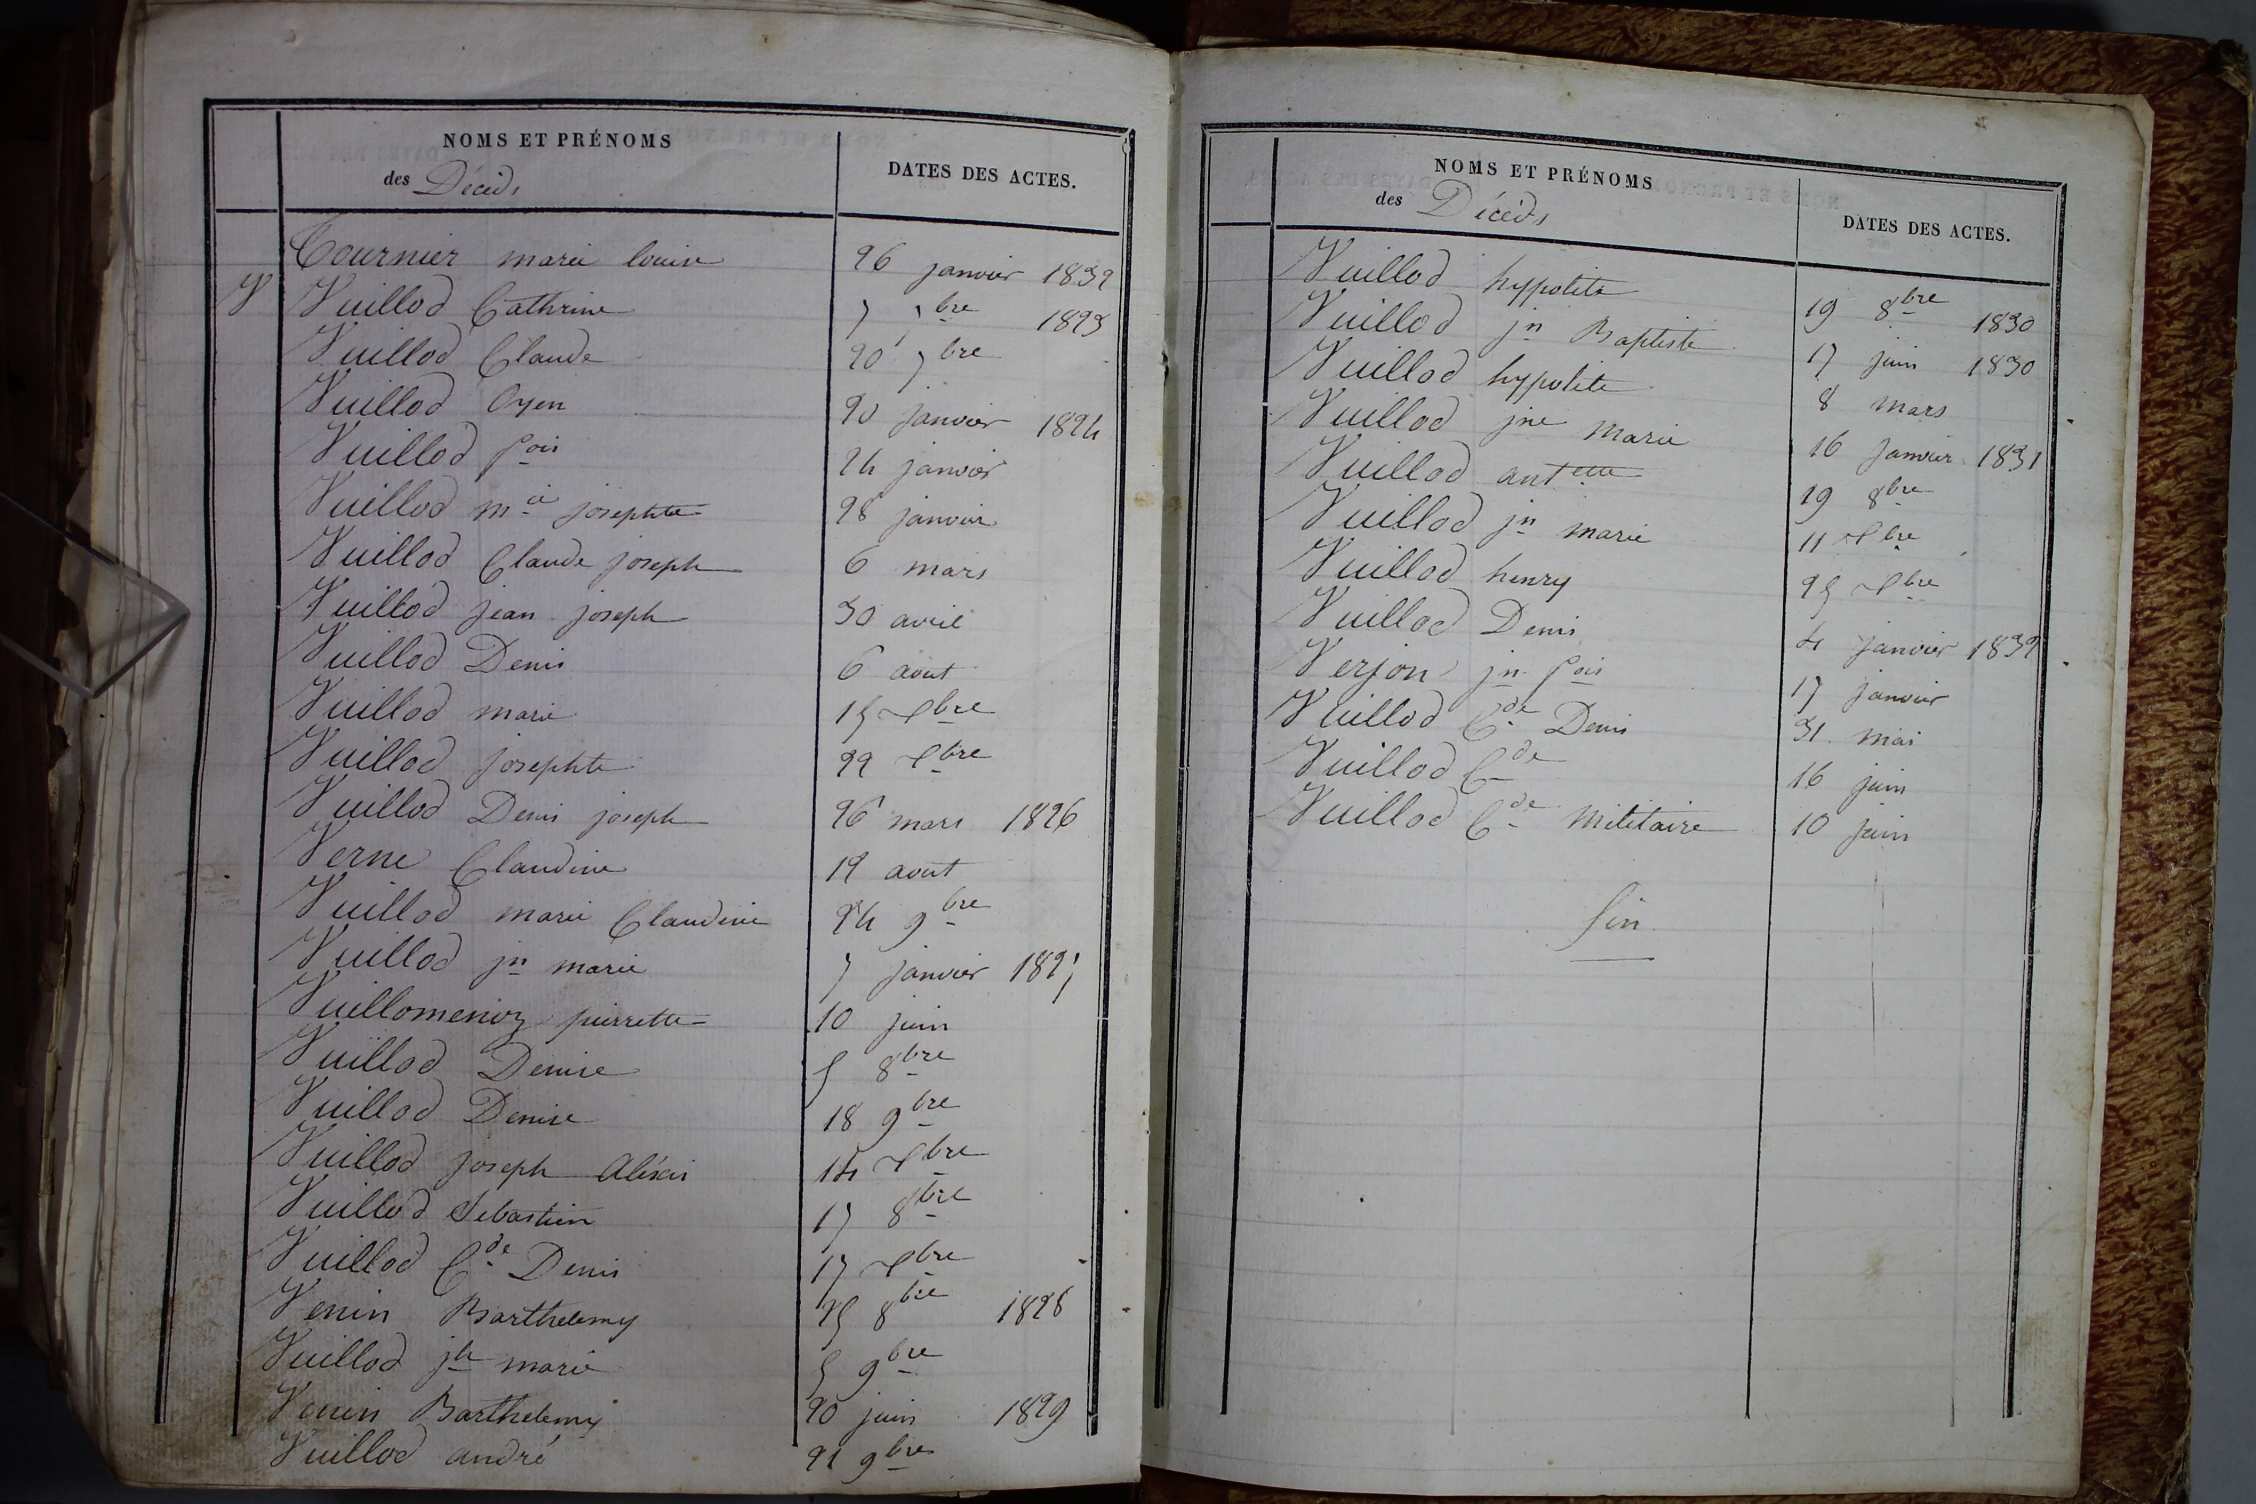 NOMS ET PRÉNOMS
des Décédés
DATES DES ACTES.
Tournier marie louise 26 janvier 1832
V Vuillod Cathrine 7 7bre 1823
Vuillod Claude 20 7bre
Vuillod Oyen 20 janvier 1824
Vuillod fois 24 janvier
Vuillod mie josephte 28 janvier
Vuillod Claude joseph 6 mars
Vuillod jean joseph 30 avril
Vuillod Denis 6 aout
Vuillod marie 15 Xbre
Vuillod josephte 22 Xbre
Vuillod Denis joseph 26 mars 1826
Verne Claudine 12 aout
Vuillod marie Claudine 24 9bre
Vuillod jn marie 7 janvier 1827
Vuillomenoz pierrette 10 juin
Vuillod Denise 5 8bre
Vuillod Denise 18 9bre
Vuillod joseph Alexis 14 Xbre
Vuillod Sebastien 17 8bre
Vuillod Cde Denis 17 Xbre
Venin Barthelemy 25 8bre 1828
Vuillod jh marie 5 9bre
Venin Barthelemy 20 juin 1829
Vuillod andré 21 9bre
NOMS ET PRÉNOMS
des Décédés
DATES DES ACTES.
Vuillod hypolite 19 8bre 1830
Vuillod jn Baptiste 17 juin 1830
Vuillod hypolite 8 mars
Vuillod jne Marie 16 Janvier 1831
Vuillod antette 19 8bre
Vuillod jn marie 11 Xbre
Vuillod henry 25 Xbre
Vuillod Denis 4 janvier 1832
Verjon jn fois 17 janvier
Vuillod Cde Denis 31 mai
Vuillod Cde 16 juin
Vuillod Cde Militaire 10 juin
fin